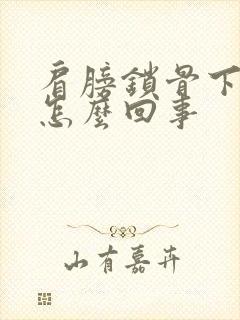 肩膀鎖骨下
怎麼回事
山有嘉卉